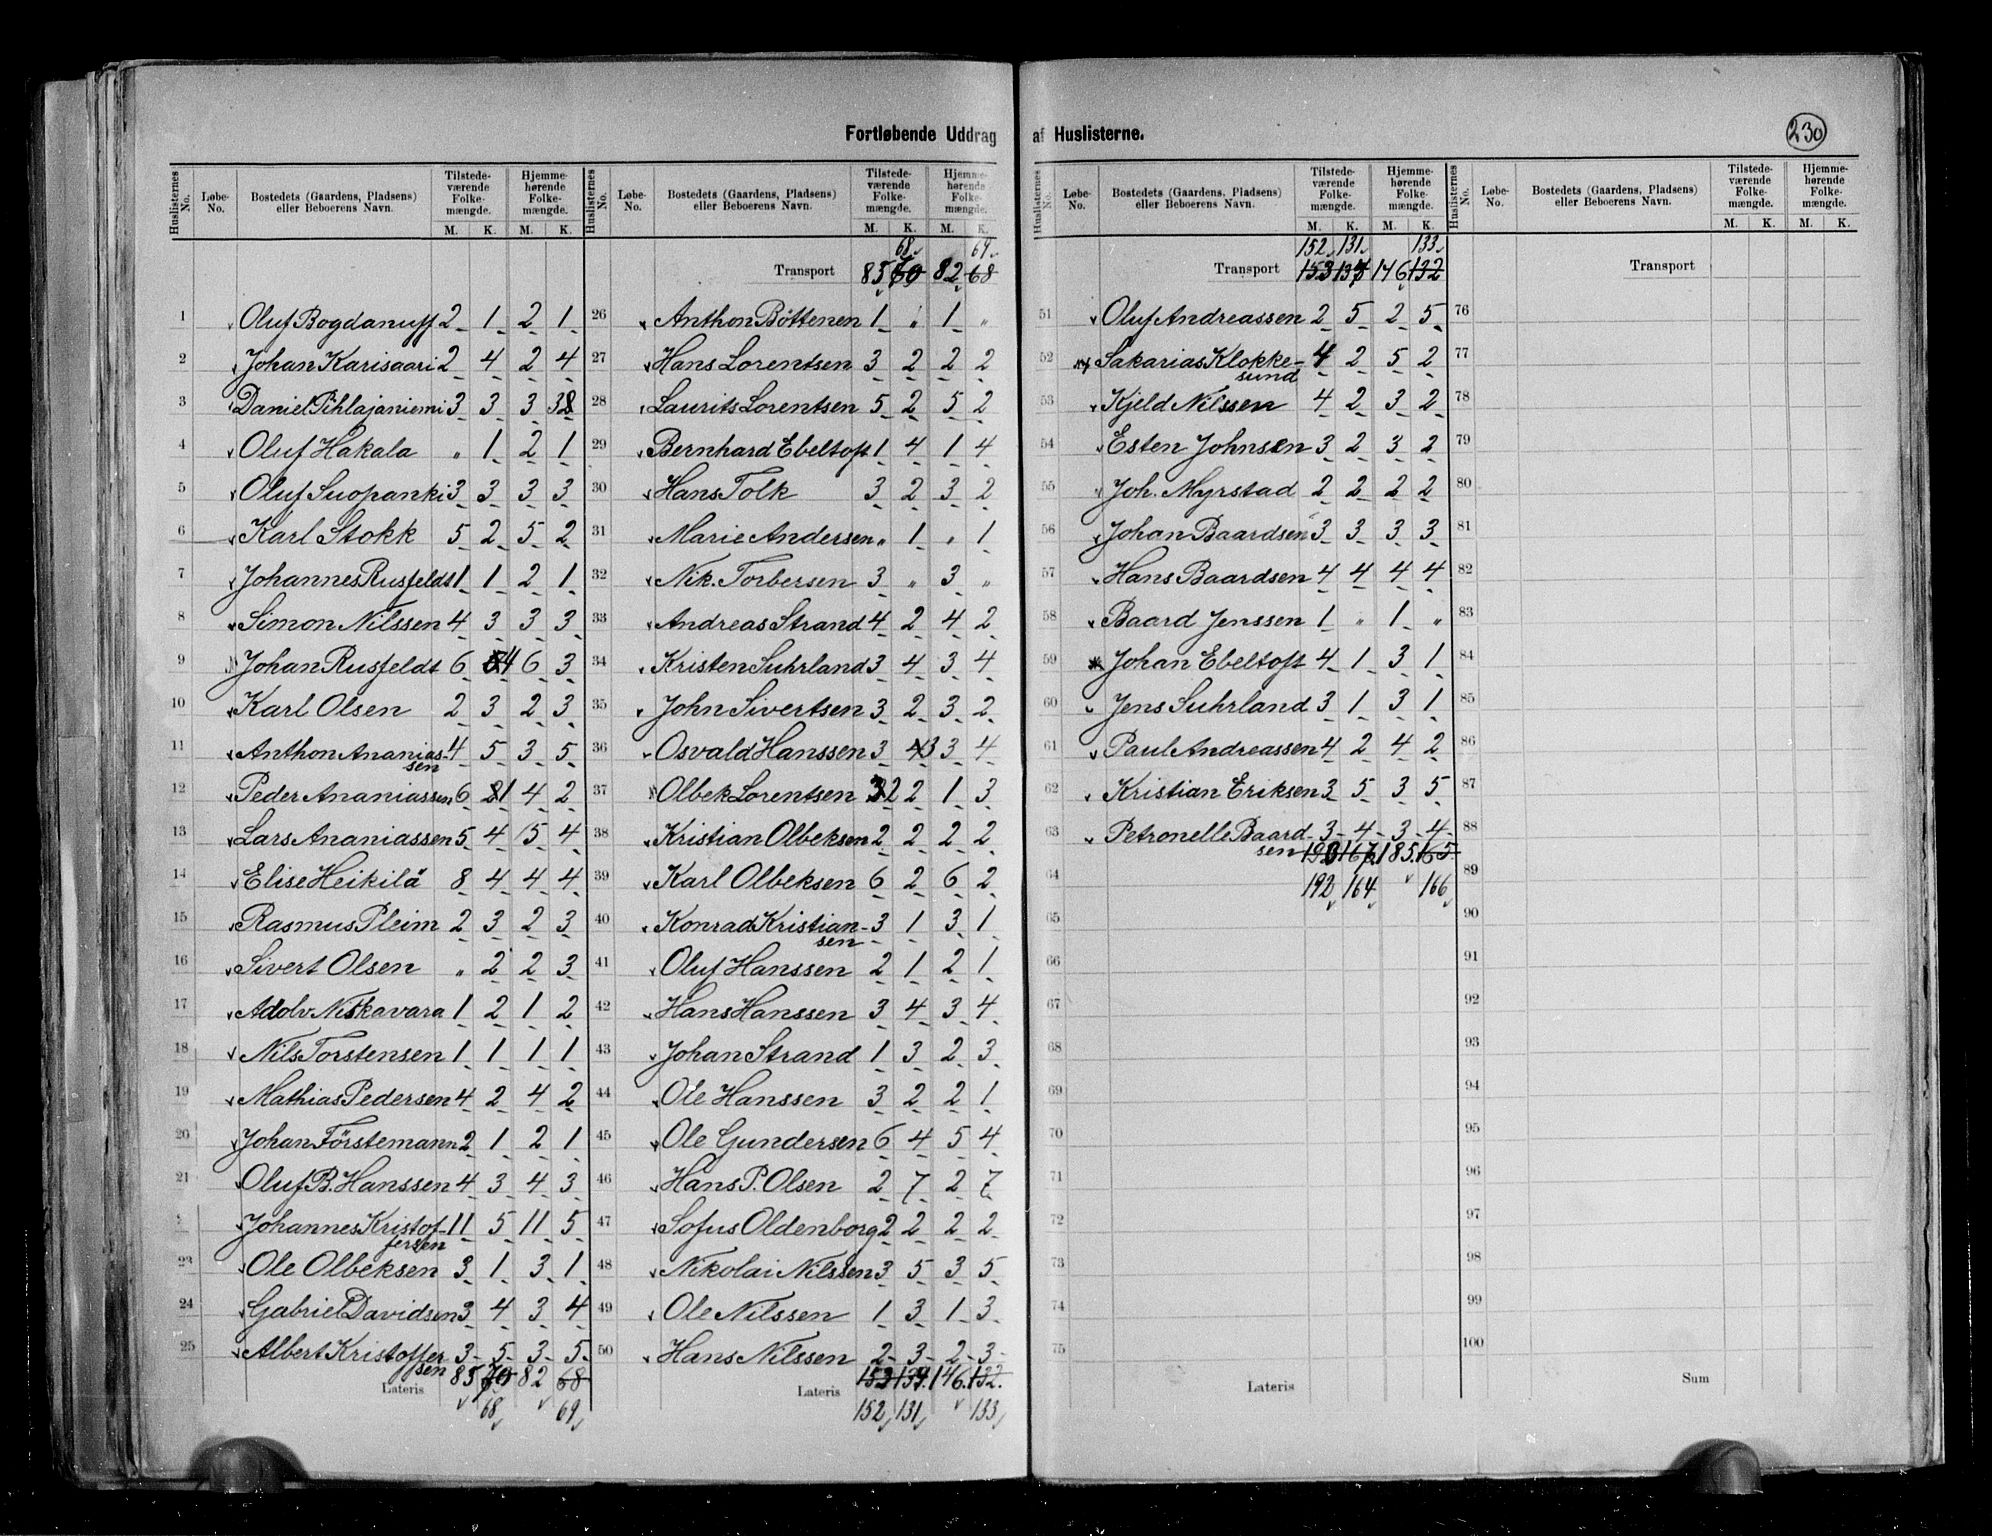 Fortløbende Uddrag af Huslisterne.
230
Huslisternes No. Løbe-No. Bostedets (Gaardens, Pladsens) eller Beboerens Navn. Tilstedeværende Folkemængde. M. K. Hjemmehørende Folkemængde. M. K.
1 Oluf Bogdanuff 2 1 2 1
2 Johan Karisaari 2 4 2 4
3 Daniel Pihlajaniemi 3 3 3 3
4 Oluf Hakala " 1 2 1
5 Oluf Suopanki 3 3 3 3
6 Karl Stokk 5 2 5 2
7 Johannes Rusfeldt 1 1 2 1
8 Simon Nilssen 4 3 3 3
9 Johan Rusfeldt 6 4 6 3
10 Karl Olsen 2 3 2 3
11 Anthon Ananias- 4 5 3 5
sen
12 Peder Ananiassen 6 1 4 2
13 Lars Ananiassen 5 4 5 4
14 Elise Heikilä 8 4 4 4
15 Rasmus Pleim 2 3 2 3
16 Sivert Olsen " 2 2 3
17 Adolv Niskavara 1 2 1 2
18 Nils Torstensen 1 1 1 1
19 Mathias Pedersen 4 2 4 2
20 Johan Förstemann 2 1 2 1
21 Oluf B. Hanssen 4 3 4 3
Johannes Kristof- 11 5 11 5
fersen
23 Ole Olbeksen 3 1 3 1
24 Gabriel Davidsen 3 4 3 4
25 Albert Kristoffer 3 5 3 5
sen
Lateris 85 70 82 68
68 69
Huslisternes No. Løbe-No. Bostedets (Gaardens, Pladsens) eller Beboerens Navn. Tilstedeværende Folkemængde. M. K. Hjemmehørende Folkemængde. M. K.
68 69
Transport 85 70 82 68
26 Anthon Böttenen 1 " 1 "
27 Hans Lorentsen 3 2 2 2
28 Laurits Lorentsen 5 2 5 2
29 Bernhard Ebeltoft 1 4 1 4
30 Hans Folk 3 2 3 2
31 Marie Andersen " 1 " 1
32 Nik. Torbersen 3 " 3 "
33 Andreas Strand 4 2 4 2
34 Kristen Suhrland 3 4 3 4
35 John Sivertsen 3 2 3 2
36 Osvald Hanssen 3 4 3 3 4
37 Olbek Lorentsen 3 2 2 1 3
38 Kristian Olbeksen 2 2 2 2
39 Karl Olbeksen 6 2 6 2
40 Konrad Kristian- 3 1 3 1
sen
41 Oluf Hanssen 2 1 2 1
42 Hans Hanssen 3 4 3 4
43 Johan Strand 1 3 2 3
44 Ole Hanssen 3 2 2 1
45 Ole Gundersen 6 4 5 4
46 Hans P. Olsen 2 7 2 7
47 Sofus Oldenborg 2 2 2 2
48 Nikolai Nilssen 3 5 3 5
49 Ole Nilssen 1 3 1 3
50 Hans Nilssen 2 3 2 3
Lateris 153 134 146 132
152 131 133
Huslisternes No. Løbe-No. Bostedets (Gaardens, Pladsens) eller Beboerens Navn. Tilstedeværende Folkemængde. M. K. Hjemmehørende Folkemængde. M. K.
152 131 133
Transport 153 134 146 132
51 Oluf Andreassen 2 5 2 5
52 Sakarias Klokke- 4 2 5 2
sund
53 Kjeld Nilssen 4 2 3 2
54 Esten Johnsen 3 2 3 2
55 Joh. Myrstad 2 2 2 2
56 Johan Baardsen 3 3 3 3
57 Hans Baardsen 4 4 4 4
58 Baard Jenssen 1 " 1 "
59 Johan Ebeltoft 4 1 3 1
60 Jens Suhrland 3 1 3 1
61 Paul Andreassen 4 2 4 2
62 Kristian Eriksen 3 5 3 5
63 Petronelle Baard- 3 4 3 4
sen 193 167 185 165
64 192 164 166
65
66
67
68
69
70
71
72
73
74
75
Lateris
Huslisternes No. Løbe-No. Bostedets (Gaardens, Pladsens) eller Beboerens Navn. Tilstedeværende Folkemængde. M. K. Hjemmehørende Folkemængde. M. K.
Transport
76
77
78
79
80
81
82
83
84
85
86
87
88
89
90
91
92
93
94
95
96
97
98
99
100
Sum